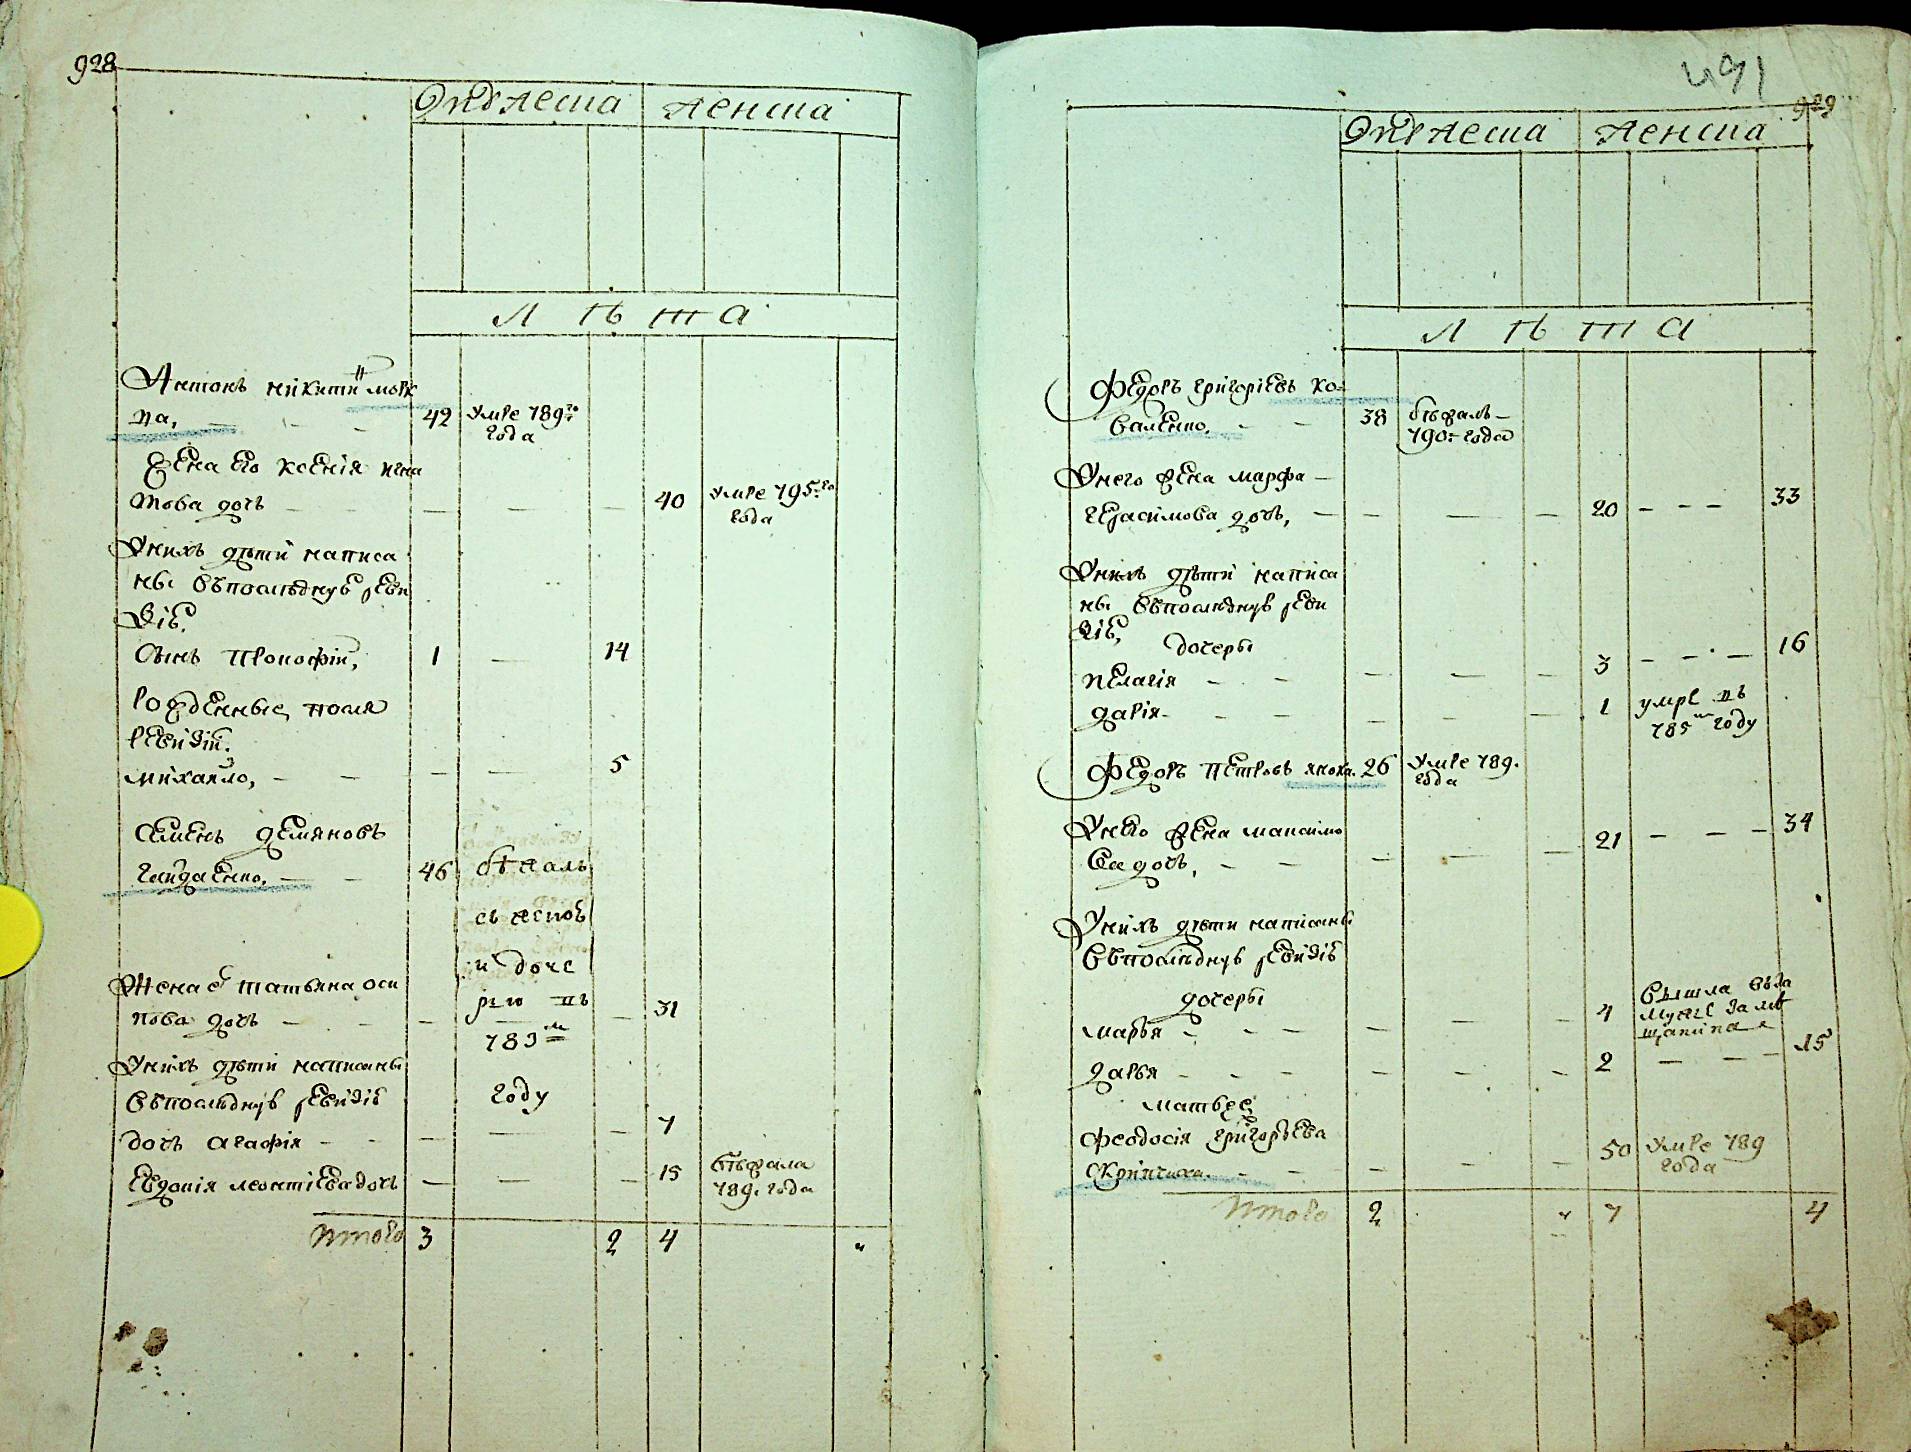 928
Мужеска женска
лѣта
Антонъ никитинъ морк
па,
42
умре 789го
года
жена его ксенія игна
това дочь
40
умре 795го
года
Унихъ дѣти написа
ны впослѣднуѣ реви
зіѣ.
Сынъ прокофій, 1 14
рожденные посля
ревизіи.
михайло, 5
семенъ демяновъ
гайдаенко, 46
бѣжалъ
съ женоѣ
и доче
рью въ
783м
году
Жена ег татьяна оси
пова дочь 31
Унихъ дѣти написаны
впослѣднуѣ ревизіѣ
дочь агафія 7
Евдокія леонтіева дочь 15
бѣжала
789. года
итого 3 2 4 "
491
929
Мужеска женска
лѣта
Федоръ григоріевъ ко-
валенко, 38
бѣжалъ
790го года
Унего жена марфа
герасимова дочь, 20 33
Унихъ дѣти написа
ны впослѣднуѣ реви
зіѣ,
дочеры
пелагія 3 16
дарія 1
умре въ
785м году
Федоръ петровъ 26
умре 789.
года
Унего жена максимо
ва дочь, 21 34
Унихъ дѣти написаны
впослѣднуѣ ревизіѣ
дочеры
марья 4
вышла въза
мужье за мѣ
щанина
дарья 2 15
матвее
Феодосія григорьева
скрипчиха. 50
умре 789
года
итого 2 " 7 4